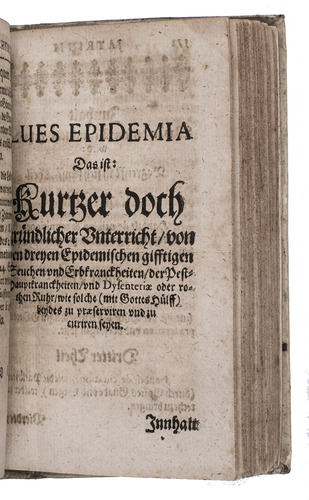 LUES EPIDEMIA
Das ist:
Kurtzer doch
gründlicher Vnterricht/ von
den dreyen Epidemischen gifftigen
Seuchen vnd Erbkranckheiten/ der Pest-
Hauptkranckheiten/ vnd Dysenteriæ oder ro-
then Ruhr/ wie solche (mit Gottes Hülff)
beydes zu præserviren vnd zu
curiren seyen.
Innhalt